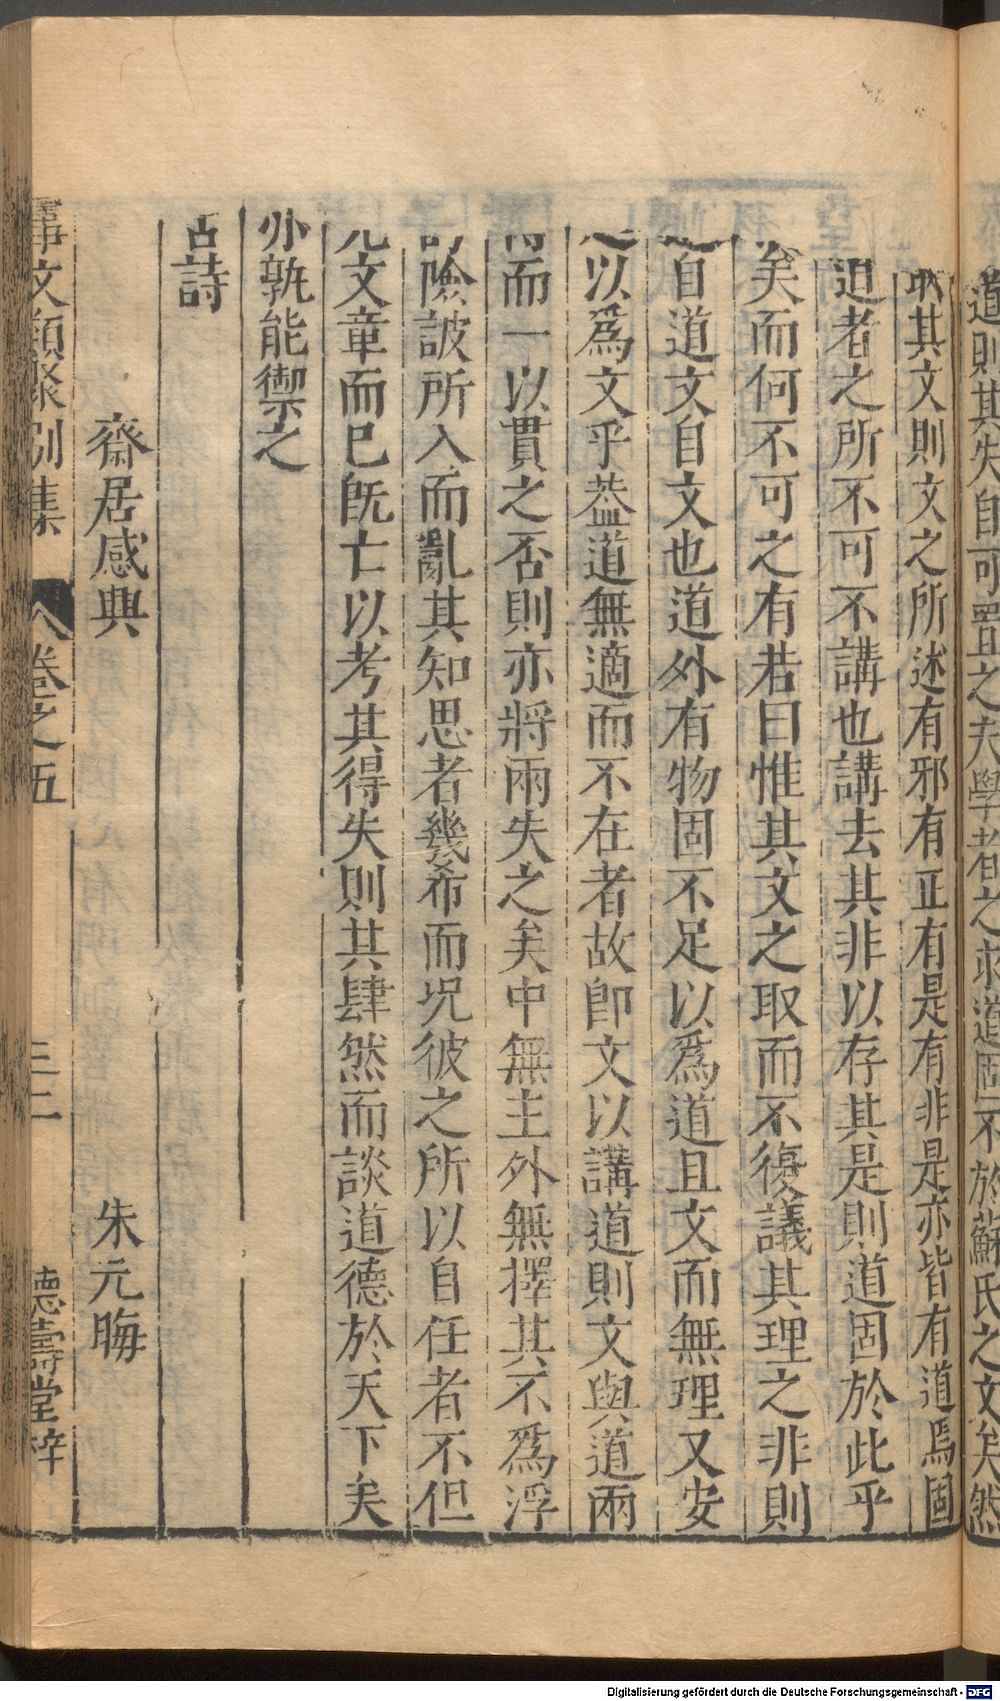 道則其失自可置之夫學者之求道固不於蘇氏之文矣然
其文則文之所述有邪有正有是有非是亦皆有道焉固
者之所不可不講也講去其非以存其是則道固於此乎
矣而何不可之有若曰惟其文之取而不復議其理之非則
自道文自文也道外有物固不足以爲道且文而無理又安
以爲文乎蓋道無適而不在者故卽文以講道則文與道兩
而一以貫之否則亦將兩失之矣中無主外無擇其不爲浮
險詖所入而亂其知思者幾希而况彼之所以自任者不但
文章而已既亡以考其得失則其肆然而談道德於天下矣
亦孰能禦之
古詩
齋居感興 朱元晦
事文類聚別集 卷之五 三二 德壽堂梓
Digitalisierung gefördert durch die Deutsche Forschungsgemeinschaft - DFG